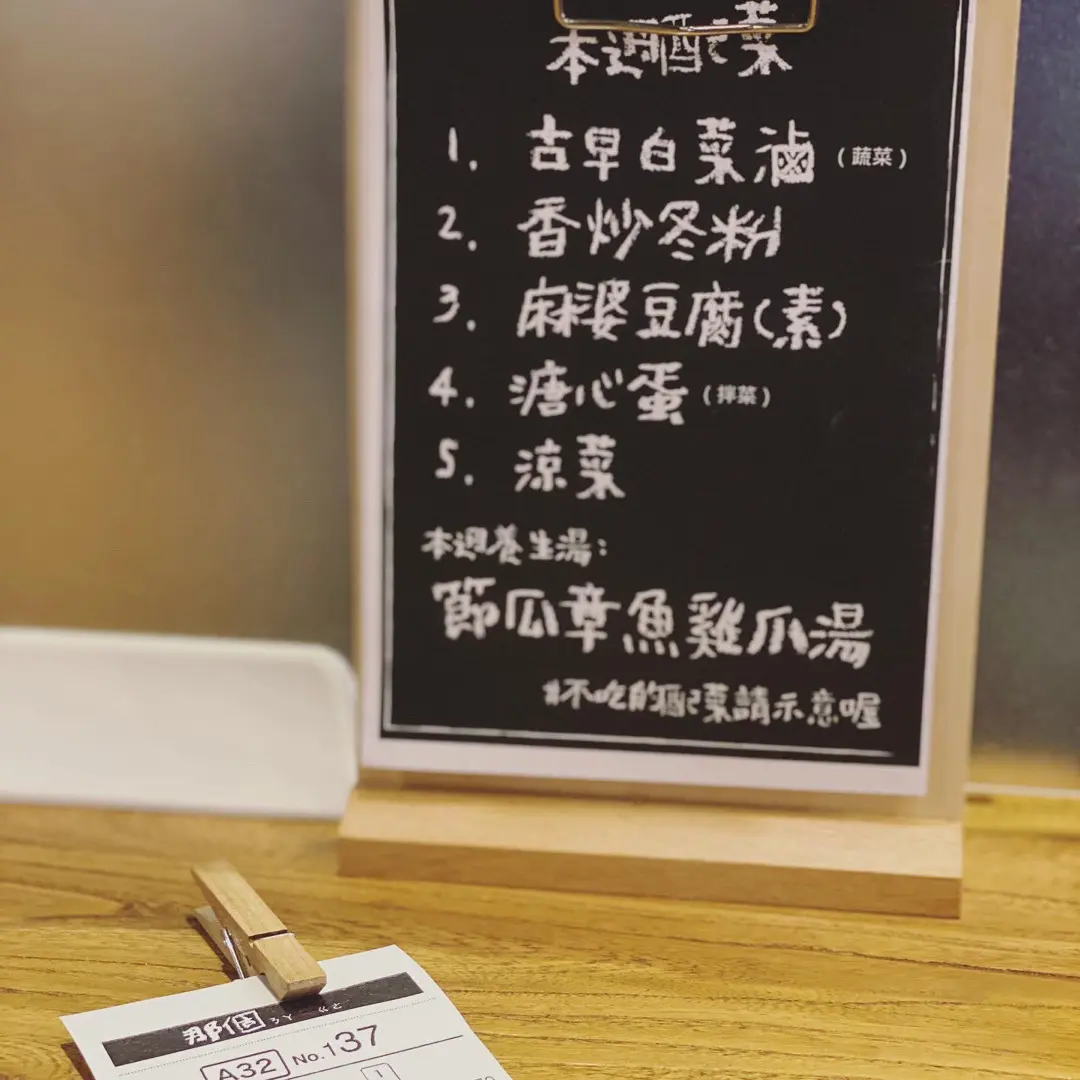 本週配菜
1. 古早白菜滷（蔬菜）
2. 香炒冬粉
3. 麻婆豆腐(素)
4. 溏心蛋（拌菜）
5. 涼菜
本週養生湯:
節瓜章魚雞爪湯
#不吃的配菜請示意喔
那個
A32 No.137
1